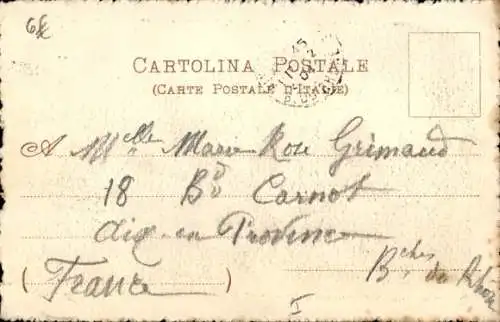 6k
CARTOLINA POSTALE
(CARTE POSTALE D'ITALIE)
A Melle Marie Rose Grimaud
18 Bd Carnot
Aix-en Provence
Bches du Rhône
(France)
I